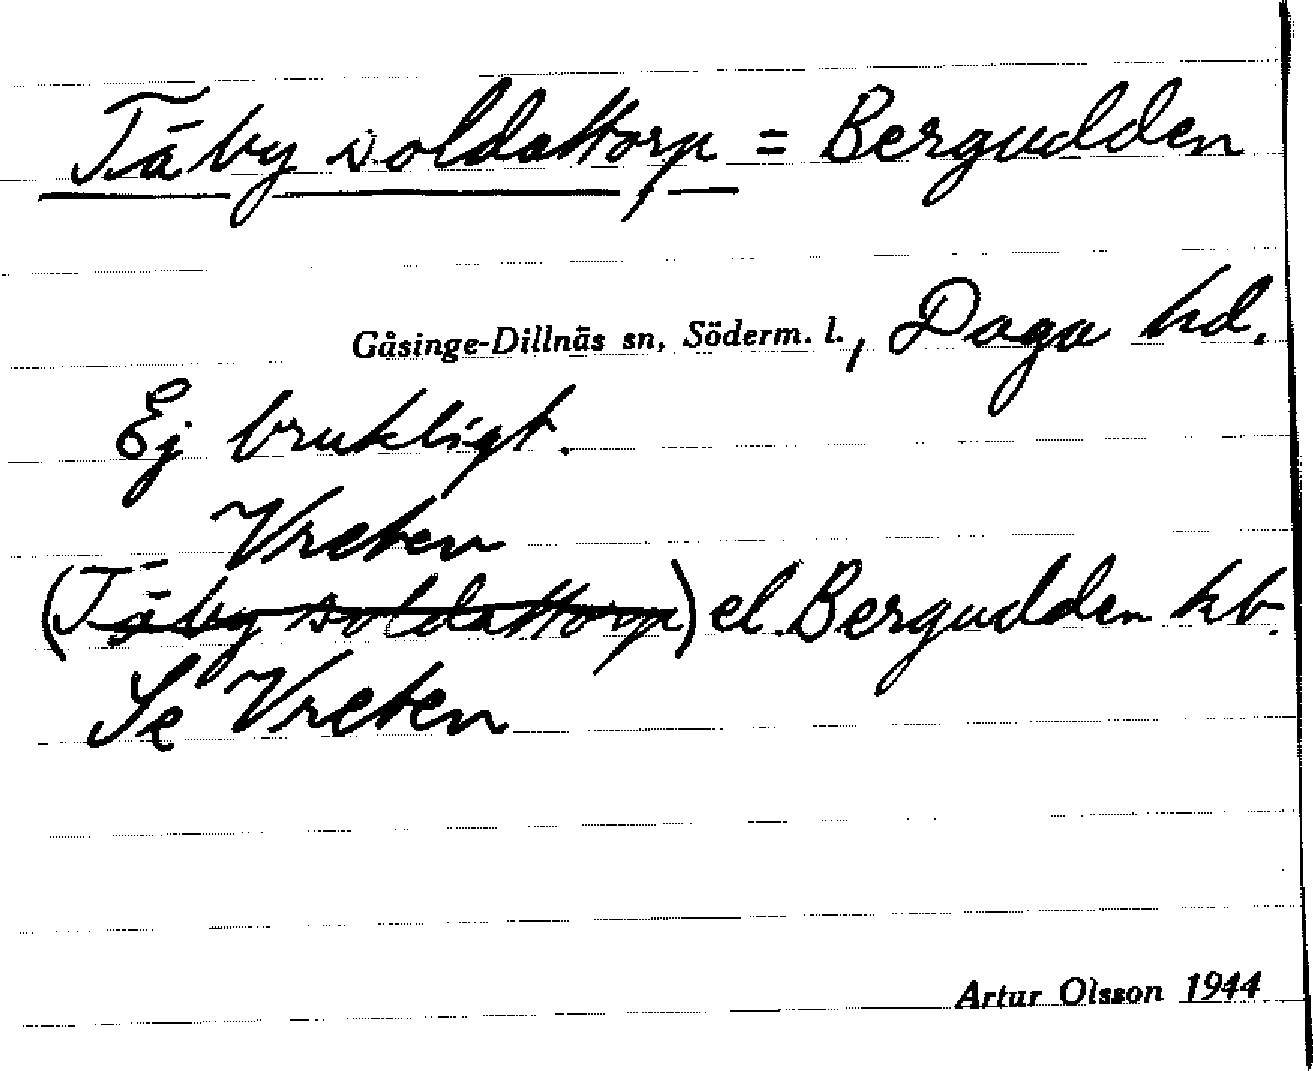 Täby soldattorp = Bergudden
Gåsinge-Dillnäs sn, Söderm. l., Daga hd.
Ej brukligt.
Vreten
(Täby soldattorp) el. Bergudden kb.
Se Vreten
Artur Olsson 1944